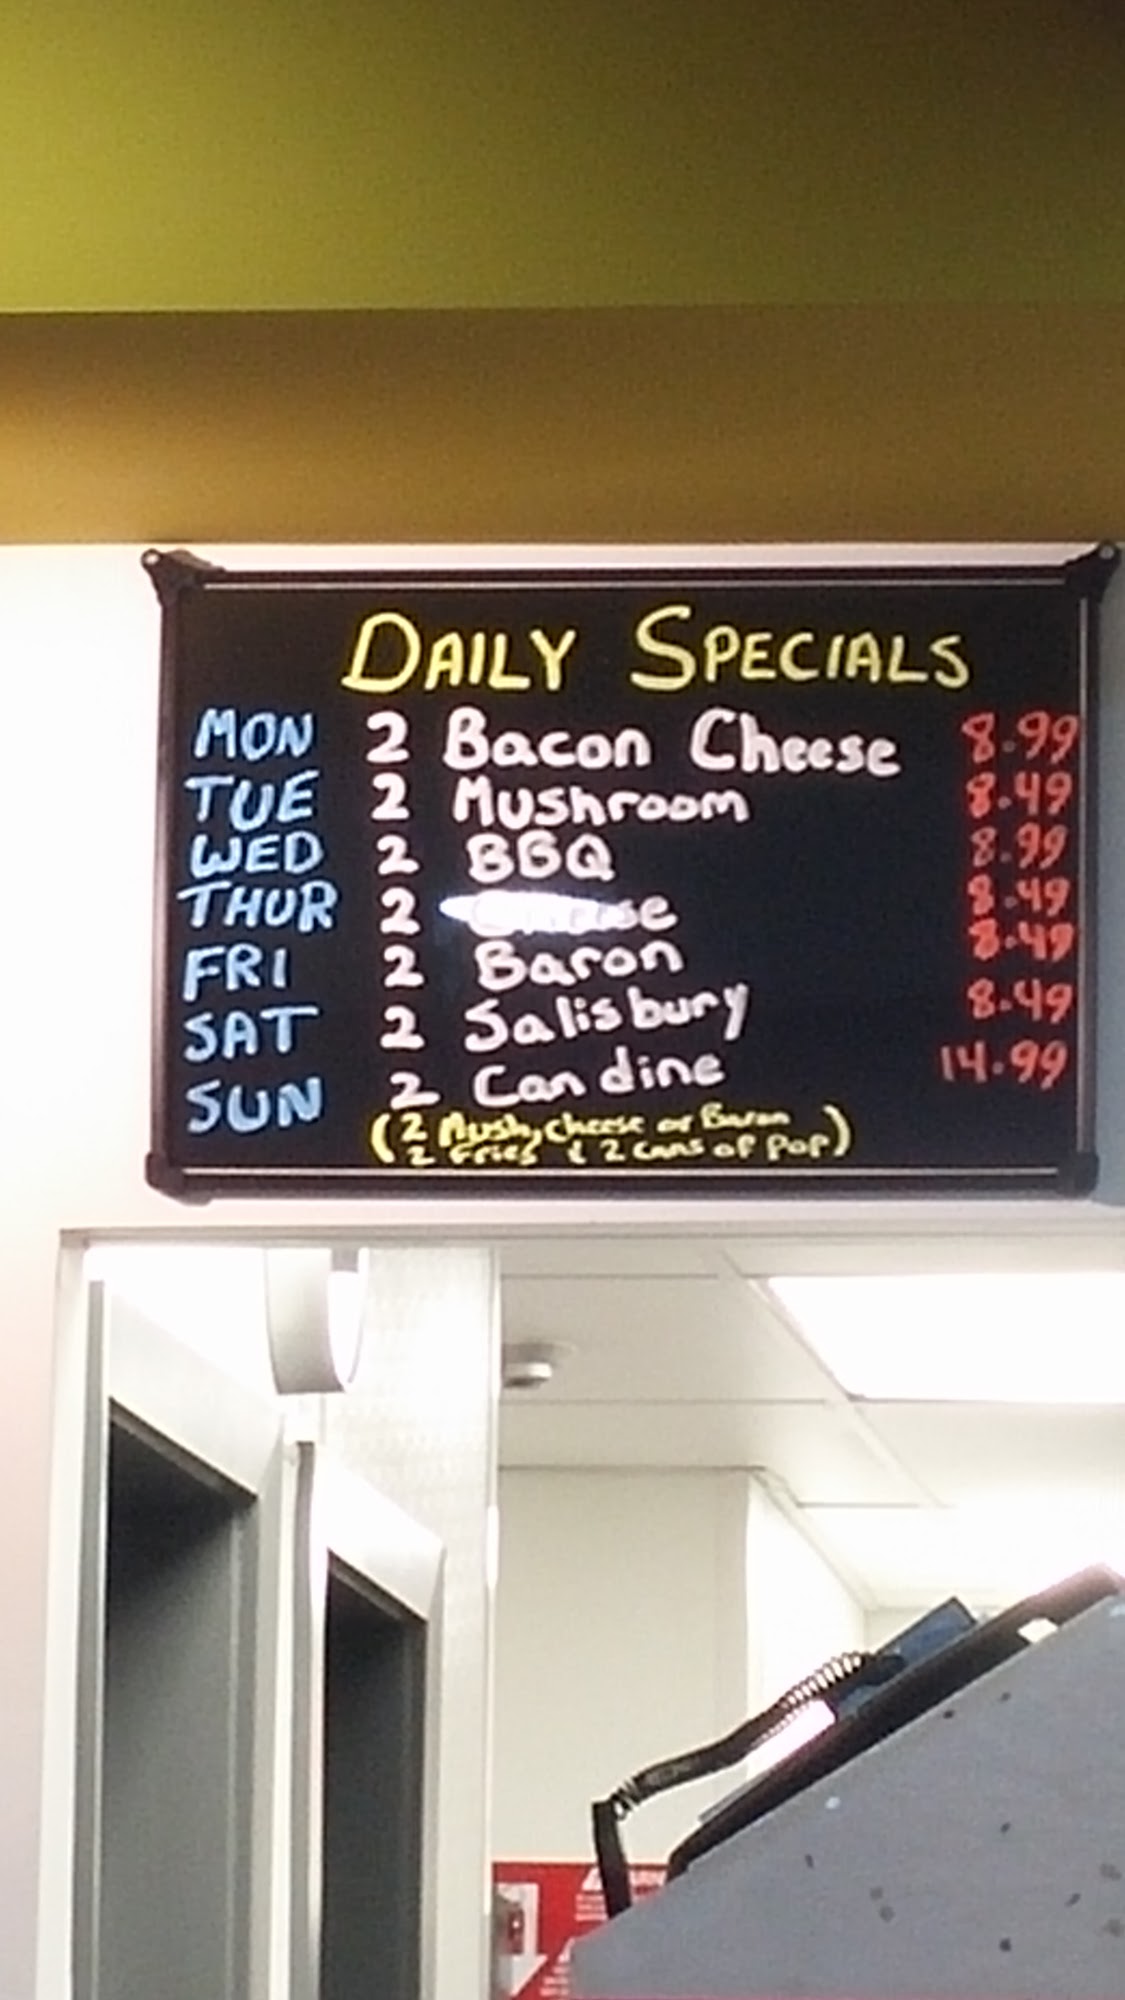 DAILY SPECIALS
MON 2 Bacon Cheese 8.99
TUE 2 Mushroom 8.49
WED 2 BBQ 8.99
THUR 2 Cheese 8.49
FRI 2 Baron 8.49
SAT 2 Salisbury 8.49
SUN 2 Can dine 14.99
(2 Mush, cheese or Baron
2 fries & 2 cans of Pop)